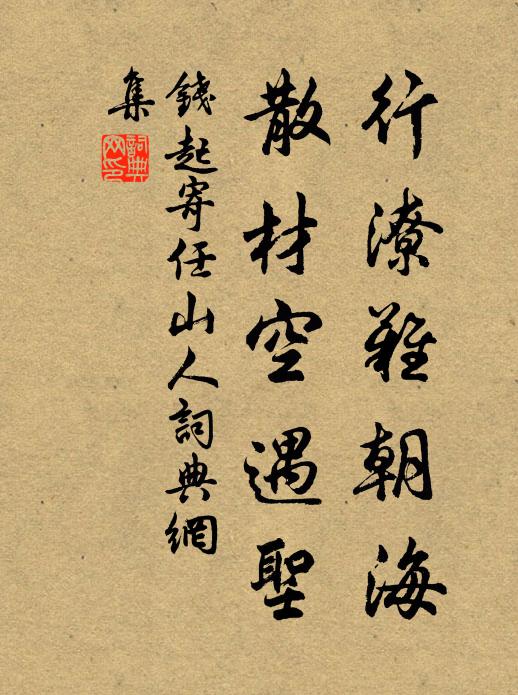 行潦難朝海
散材空遇聖
錢起寄任山人詞典網
集
詞典
网印